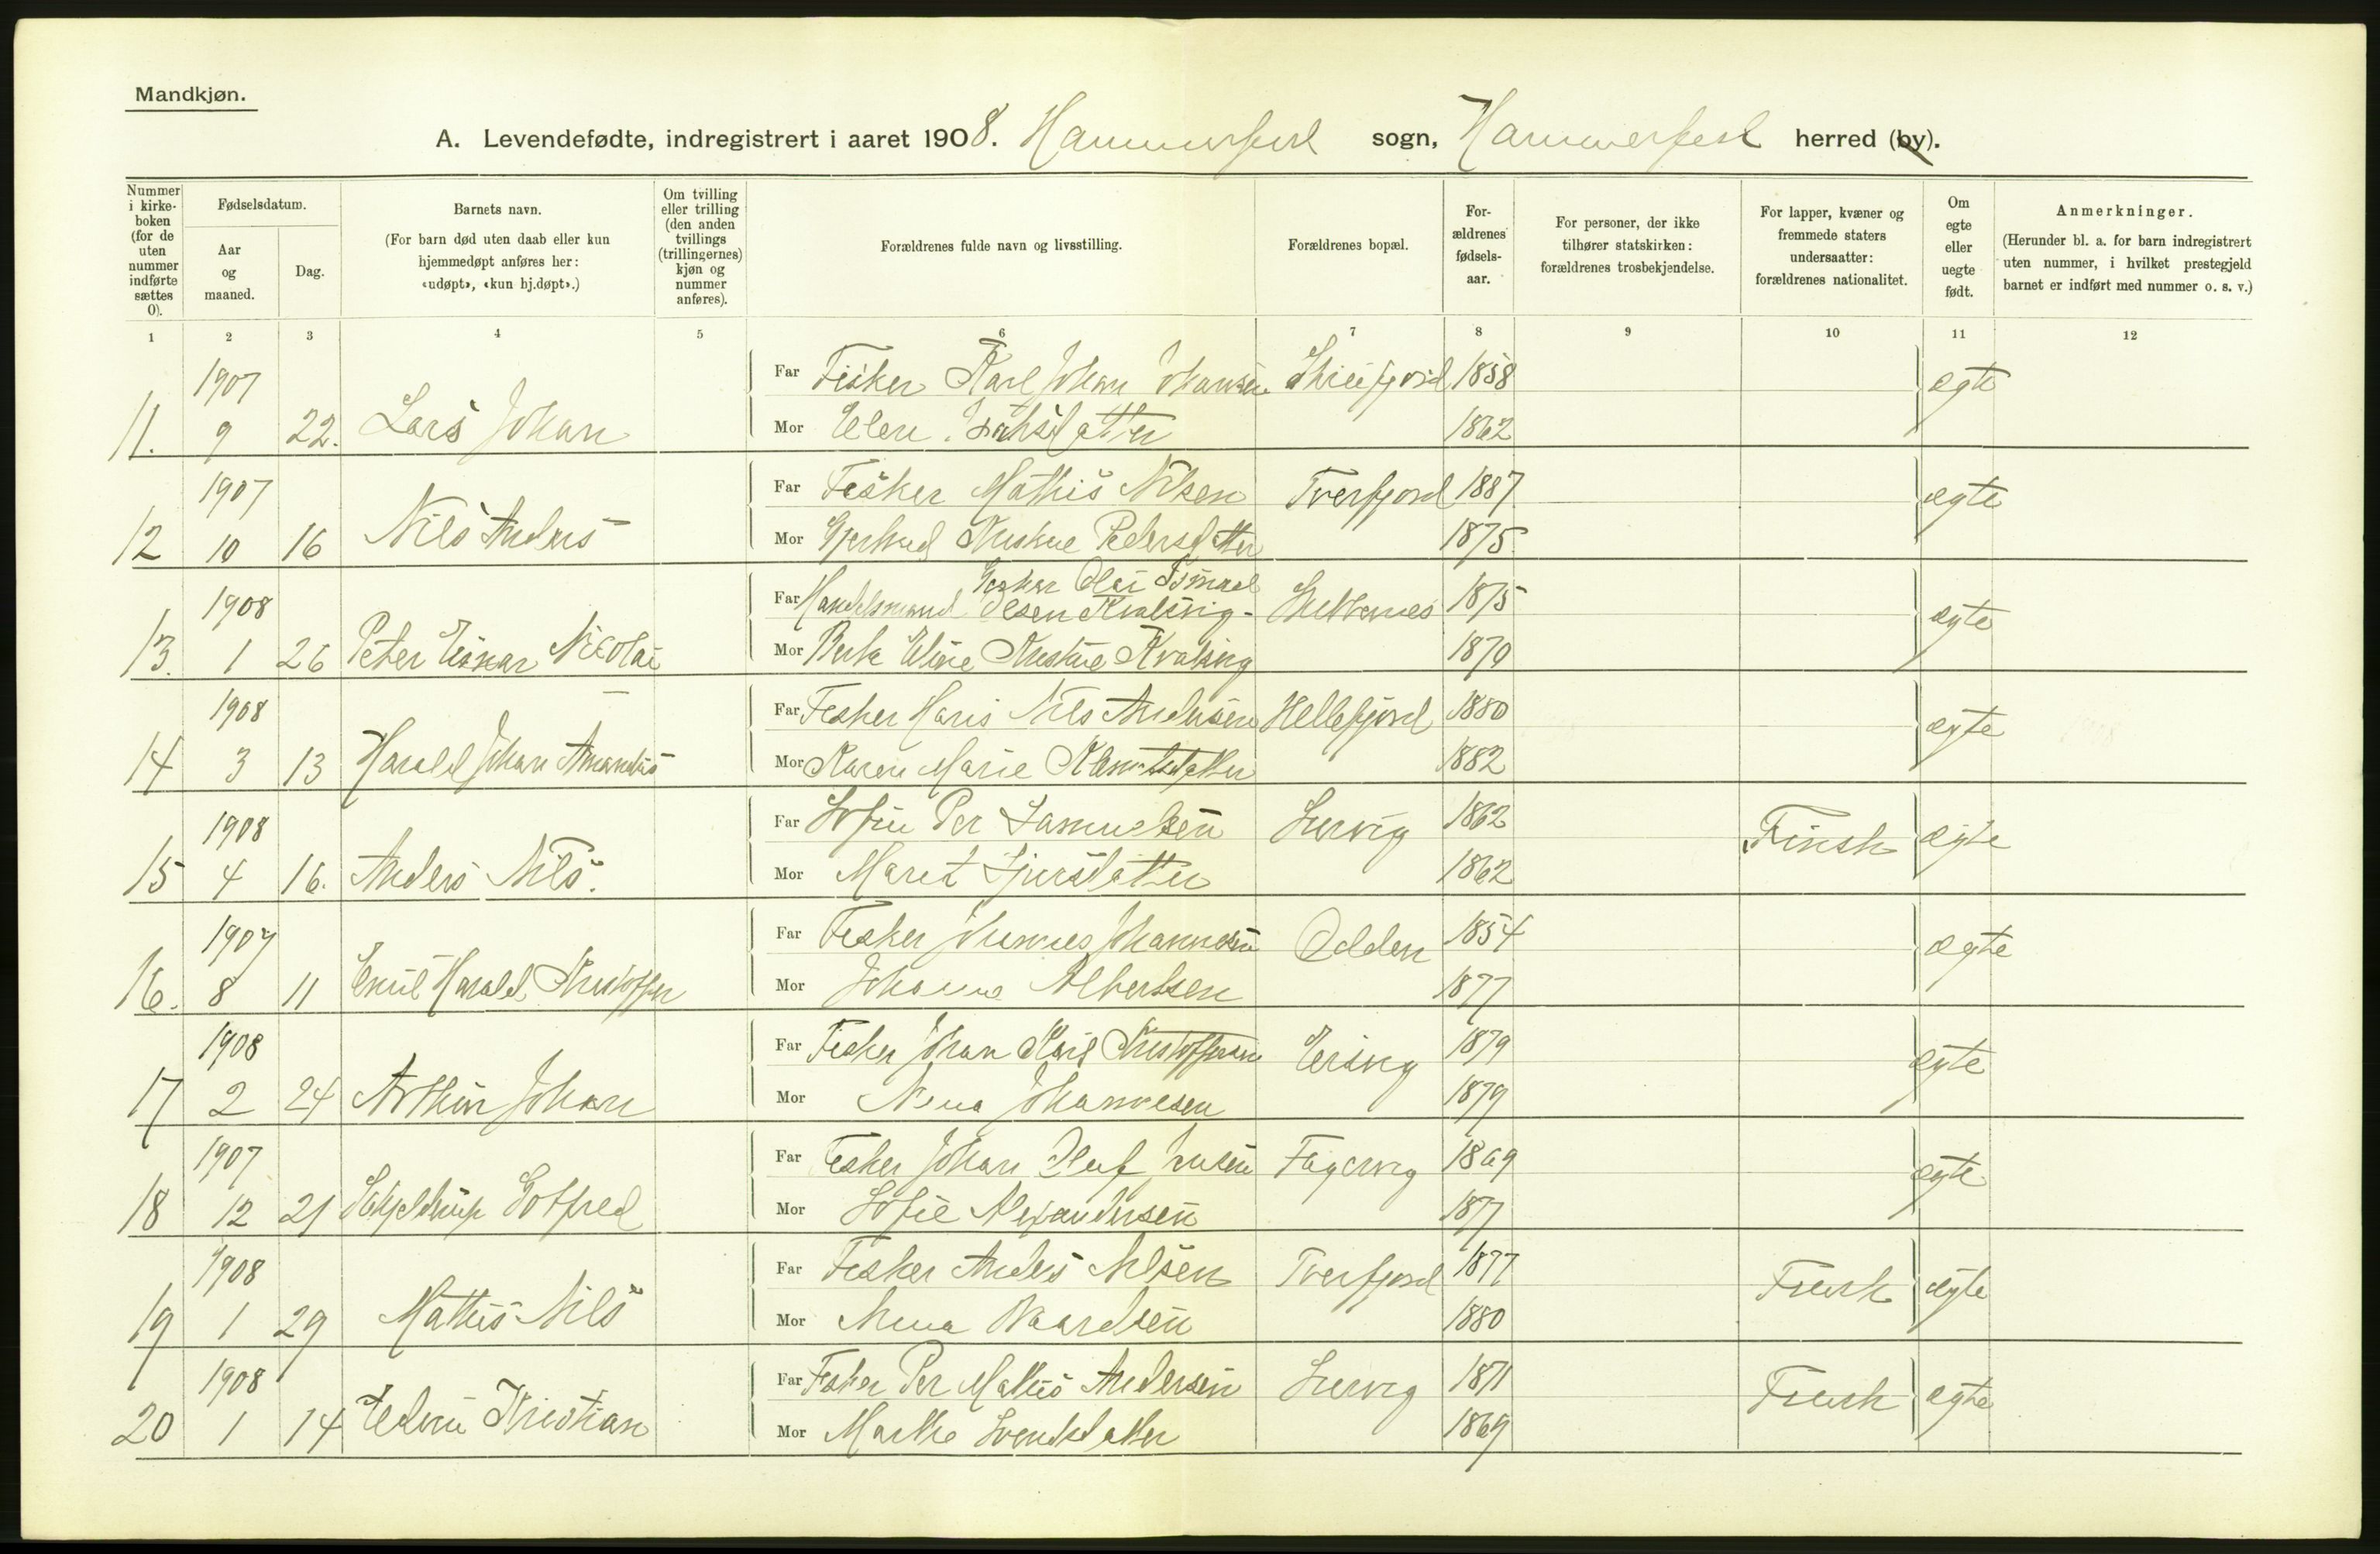 Mandkjøn.
A. Levendefødte, indregistrert i aaret 1908. Hammerfest sogn, Hammerfest herred (by).
Nummer i kirkeboken (for de uten nummer indførte sættes 0).
Fødselsdatum.
Aar og maaned.
Dag.
Barnets navn.
(For barn død uten daab eller kun hjemmedøpt anføres her: «udøpt», «kun hj.døpt».)
Om tvilling eller trilling (den anden tvillings (trillingernes) kjøn og nummer anføres).
Forældrenes fulde navn og livsstilling.
Forældrenes bopæl.
Forældrenes fødselsaar.
For personer, der ikke tilhører statskirken: forældrenes trosbekjendelse.
For lapper, kvæner og fremmede staters undersaatter: forældrenes nationalitet.
Om egte eller uegte født.
Anmerkninger.
(Herunder bl. a. for barn indregistrert uten nummer, i hvilket prestegjeld barnet er indført med nummer o. s. v.)
1 2 3 4 5 6 7 8 9 10 11 12
1907 Far Fisker Karl Johan Johansen 1858 ægte
11. 9 22. Lars Johan Mor Elen 1862
1907 Far Fisker Mathis Nilsen Tverfjord 1887 ægte
12 10 16 Nils Anders Mor Pedersdatter 1875
Olai
1908 Far Handelsmand Olsen Kvalsvig 1875 ægte
13. 1 26 Peter Einar Nicolai Mor Eline Kvalsvig 1879
1908 Far Fisker Hans Nils Andersen Hellefjord 1880 ægte
14 3 13 Harald Johan Amandus Mor Karen Marie 1882
1908 Far Per Samuelsen Survig 1862 Finsk ægte
15 4 16. Anders Nils. Mor Maret 1862
1907 Far Fisker Johannes Johannesen Odden 1854 ægte
16. 8 11 Emil Harald Kristoffer Mor Johanna Albertsen 1877
1908 Far Fisker Johan Karl Kristoffersen 1879 ægte
17 2 24 Arthur Johan Mor Johannesen 1879
1907 Far Fisker Johan Oluf Jensen Fagervig 1869 ægte
18 12 21 Schjelderup Gotfred Mor Sofie Alexandersen 1877
1908 Far Fisker Anders Nilsen Tverfjord 1877 Finsk ægte
19 1 29 Mathis Nils Mor 1880
1908 Far Fisker Per Mathis Andersen Survig 1871 Finsk ægte
20 1 14 Edvin Kristian Mor Marthe Svendsdatter 1869